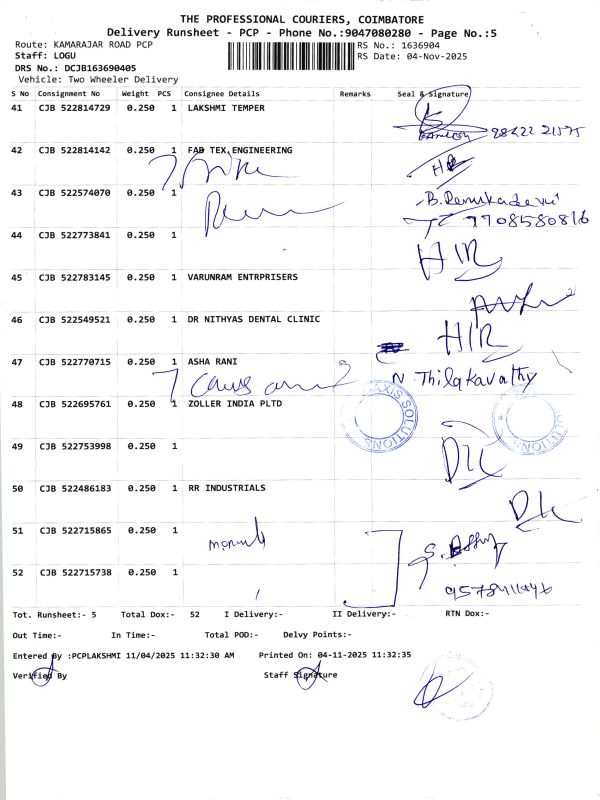 THE PROFESSIONAL COURIERS, COIMBATORE
Delivery Runsheet - PCP - Phone No.:9047080280 - Page No.:5
Route: KAMARAJAR ROAD PCP
RS No.: 1636904
Staff: LOGU
RS Date: 04-Nov-2025
DRS No.: DCJB163690405
Vehicle: Two Wheeler Delivery
S No Consignment No Weight PCS Consignee Details Remarks Seal & Signature
41 CJB 522814729 0.250 1 LAKSHMI TEMPER
42 CJB 522814142 0.250 1 FAB TEX ENGINEERING
43 CJB 522574070 0.250 1
B. Renukadevi
7708580816
44 CJB 522773841 0.250 1
H/R
45 CJB 522783145 0.250 1 VARUNRAM ENTRPRISERS
46 CJB 522549521 0.250 1 DR NITHYAS DENTAL CLINIC
H/R
47 CJB 522770715 0.250 1 ASHA RANI
N. Thilakavathy
48 CJB 522695761 0.250 1 ZOLLER INDIA PLTD
AXIS SOLUTIONS
SOLUTIONS
49 CJB 522753998 0.250 1
D/L
50 CJB 522486183 0.250 1 RR INDUSTRIALS
D/L
51 CJB 522715865 0.250 1
52 CJB 522715738 0.250 1
Tot. Runsheet:- 5 Total Dox:- 52 I Delivery:- II Delivery:- RTN Dox:-
Out Time:- In Time:- Total POD:- Delvy Points:-
Entered By :PCPLAKSHMI 11/04/2025 11:32:30 AM Printed On: 04-11-2025 11:32:35
Verified By Staff Signature